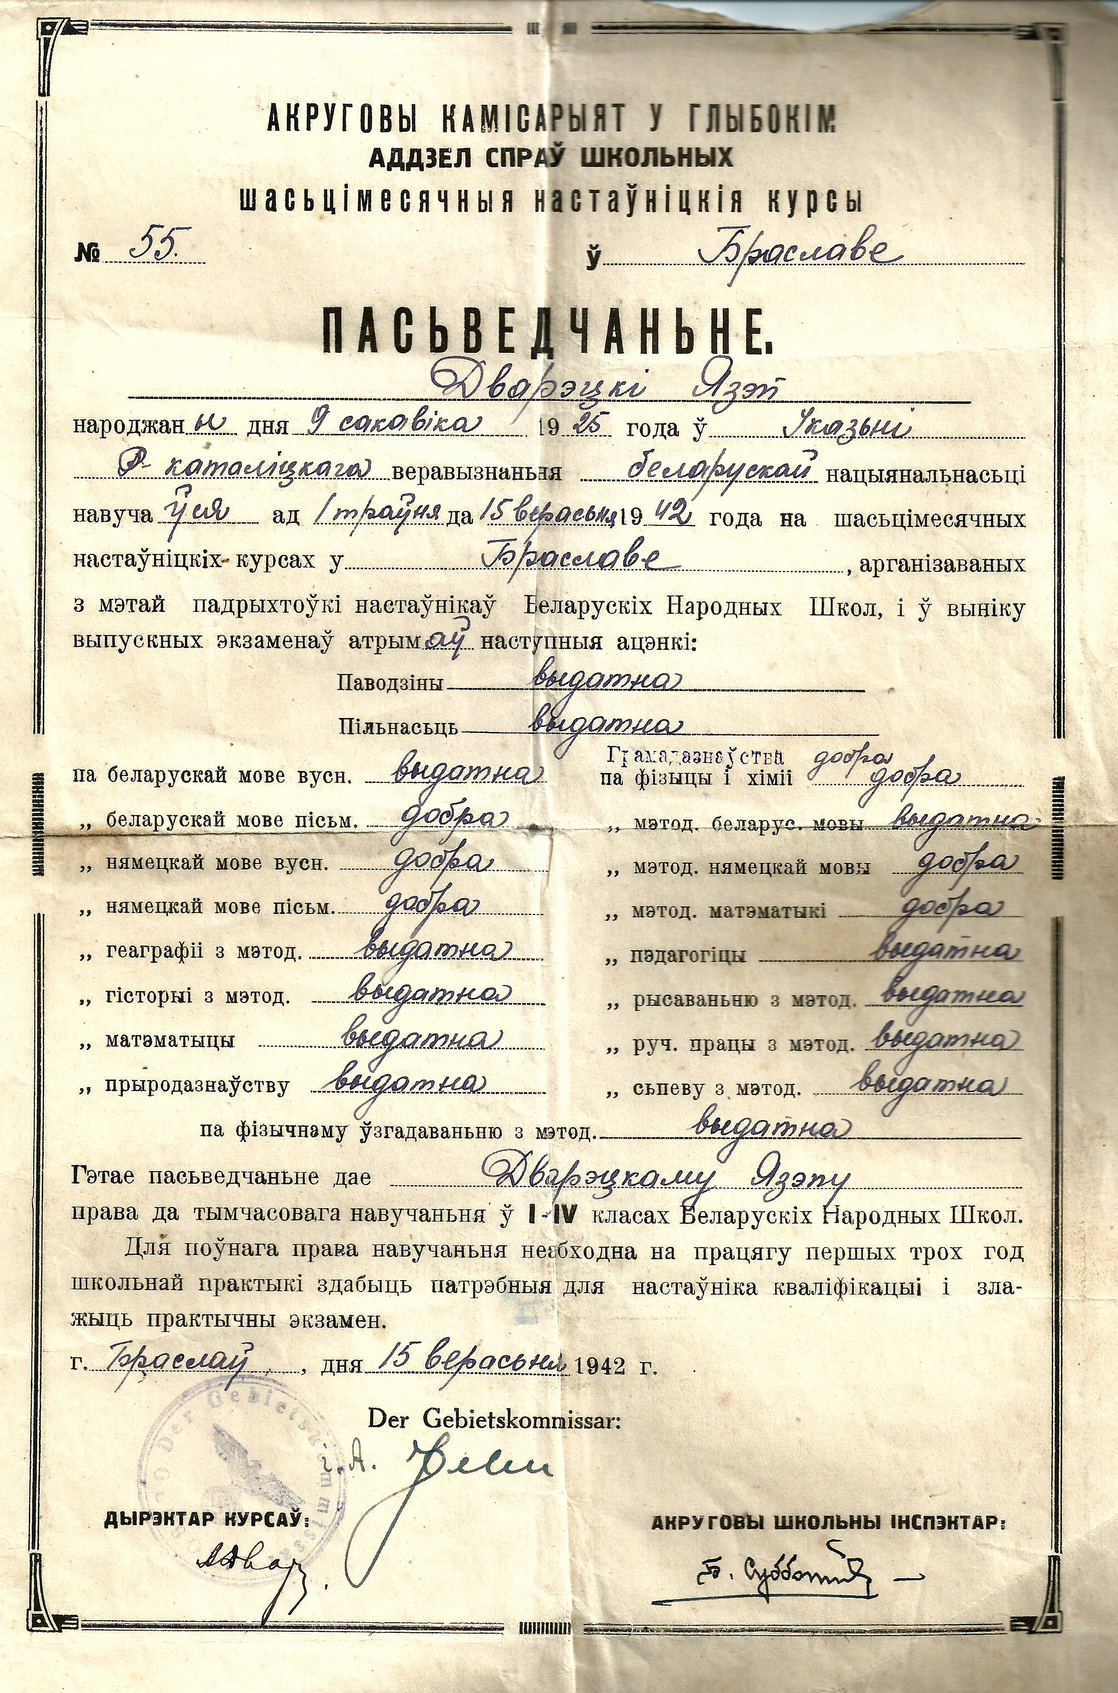 АКРУГОВЫ КАМІСАРЫЯТ У ГЛЫБОКІМ
АДДЗЕЛ СПРАЎ ШКОЛЬНЫХ
шасьцімесячныя настаўніцкія курсы
№ 55. ў Браславе
ПАСЬВЕДЧАНЬНЕ.
Дварэцкі Язэп
народжаны дня 9 сакавіка 1925 года ў Іказьні
Р-каталіцкага веравызнаньня беларускай нацыянальнасьці
навучаўся ад 1 траўня да 15 верасьня 1942 года на шасьцімесячных
настаўніцкіх курсах у Браславе, арганізаваных
з мэтай падрыхтоўкі настаўнікаў Беларускіх Народных Школ, і ў выніку
выпускных экзаменаў атрымаў наступныя ацэнкі:
Паводзіны выдатна
Пільнасьць выдатна
Грамадазнаўства добра
па беларускай мове вусн. выдатна па фізыцы і хіміі добра
„ беларускай мове пісьм. добра „ мэтод. беларус. мовы выдатна
„ нямецкай мове вусн. добра „ мэтод. нямецкай мовы добра
„ нямецкай мове пісьм. добра „ мэтод. матэматыкі добра
„ геаграфіі з мэтод. выдатна „ пэдагогіцы выдатна
„ гісторыі з мэтод. выдатна „ рысаваньню з мэтод. выдатна
„ матэматыцы выдатна „ руч. працы з мэтод. выдатна
„ прыродазнаўству выдатна „ сьпеву з мэтод. выдатна
па фізычнаму ўзгадаваньню з мэтод. выдатна
Гэтае пасьведчаньне дае Дварэцкаму Язэпу
права да тымчасовага навучаньня ў I-IV класах Беларускіх Народных Школ.
Для поўнага права навучаньня неабходна на працягу першых трох год
школьнай практыкі здабыць патрэбныя для настаўніка кваліфікацыі і зла-
жыць практычны экзамен.
г. Браслаў, дня 15 верасьня 1942 г.
Der Gebietskommissar
Der Gebietskomnissar:
i. A.
ДЫРЭКТАР КУРСАЎ: АКРУГОВЫ ШКОЛЬНЫ ІНСПЭКТАР:
Б. Субботін